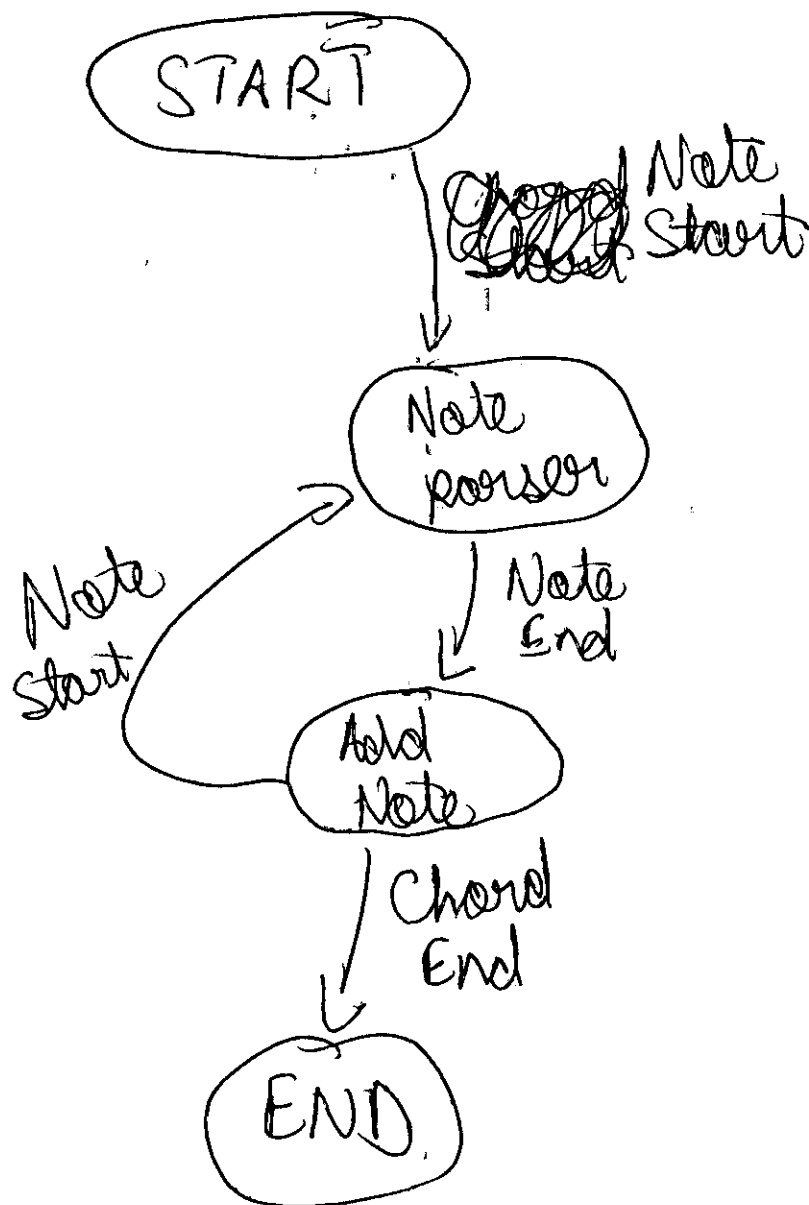 START
Note
Start
Note
parser
Note
End
Note
start
Add
Note
Chord
End
END